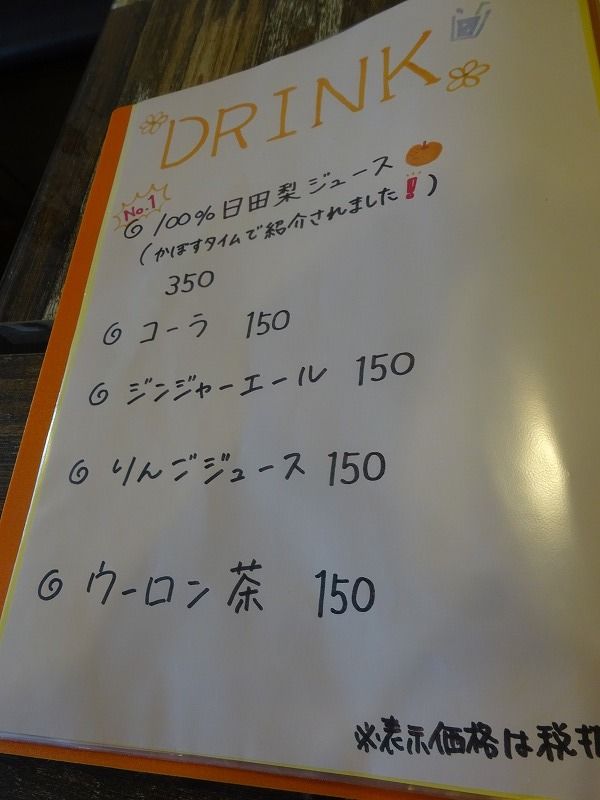 DRINK
No.1
100%日田梨ジュース
(かぼすタイムで紹介されました!)
350
コーラ 150
ジンジャーエール 150
りんごジュース 150
ウーロン茶 150
※表示価格は税